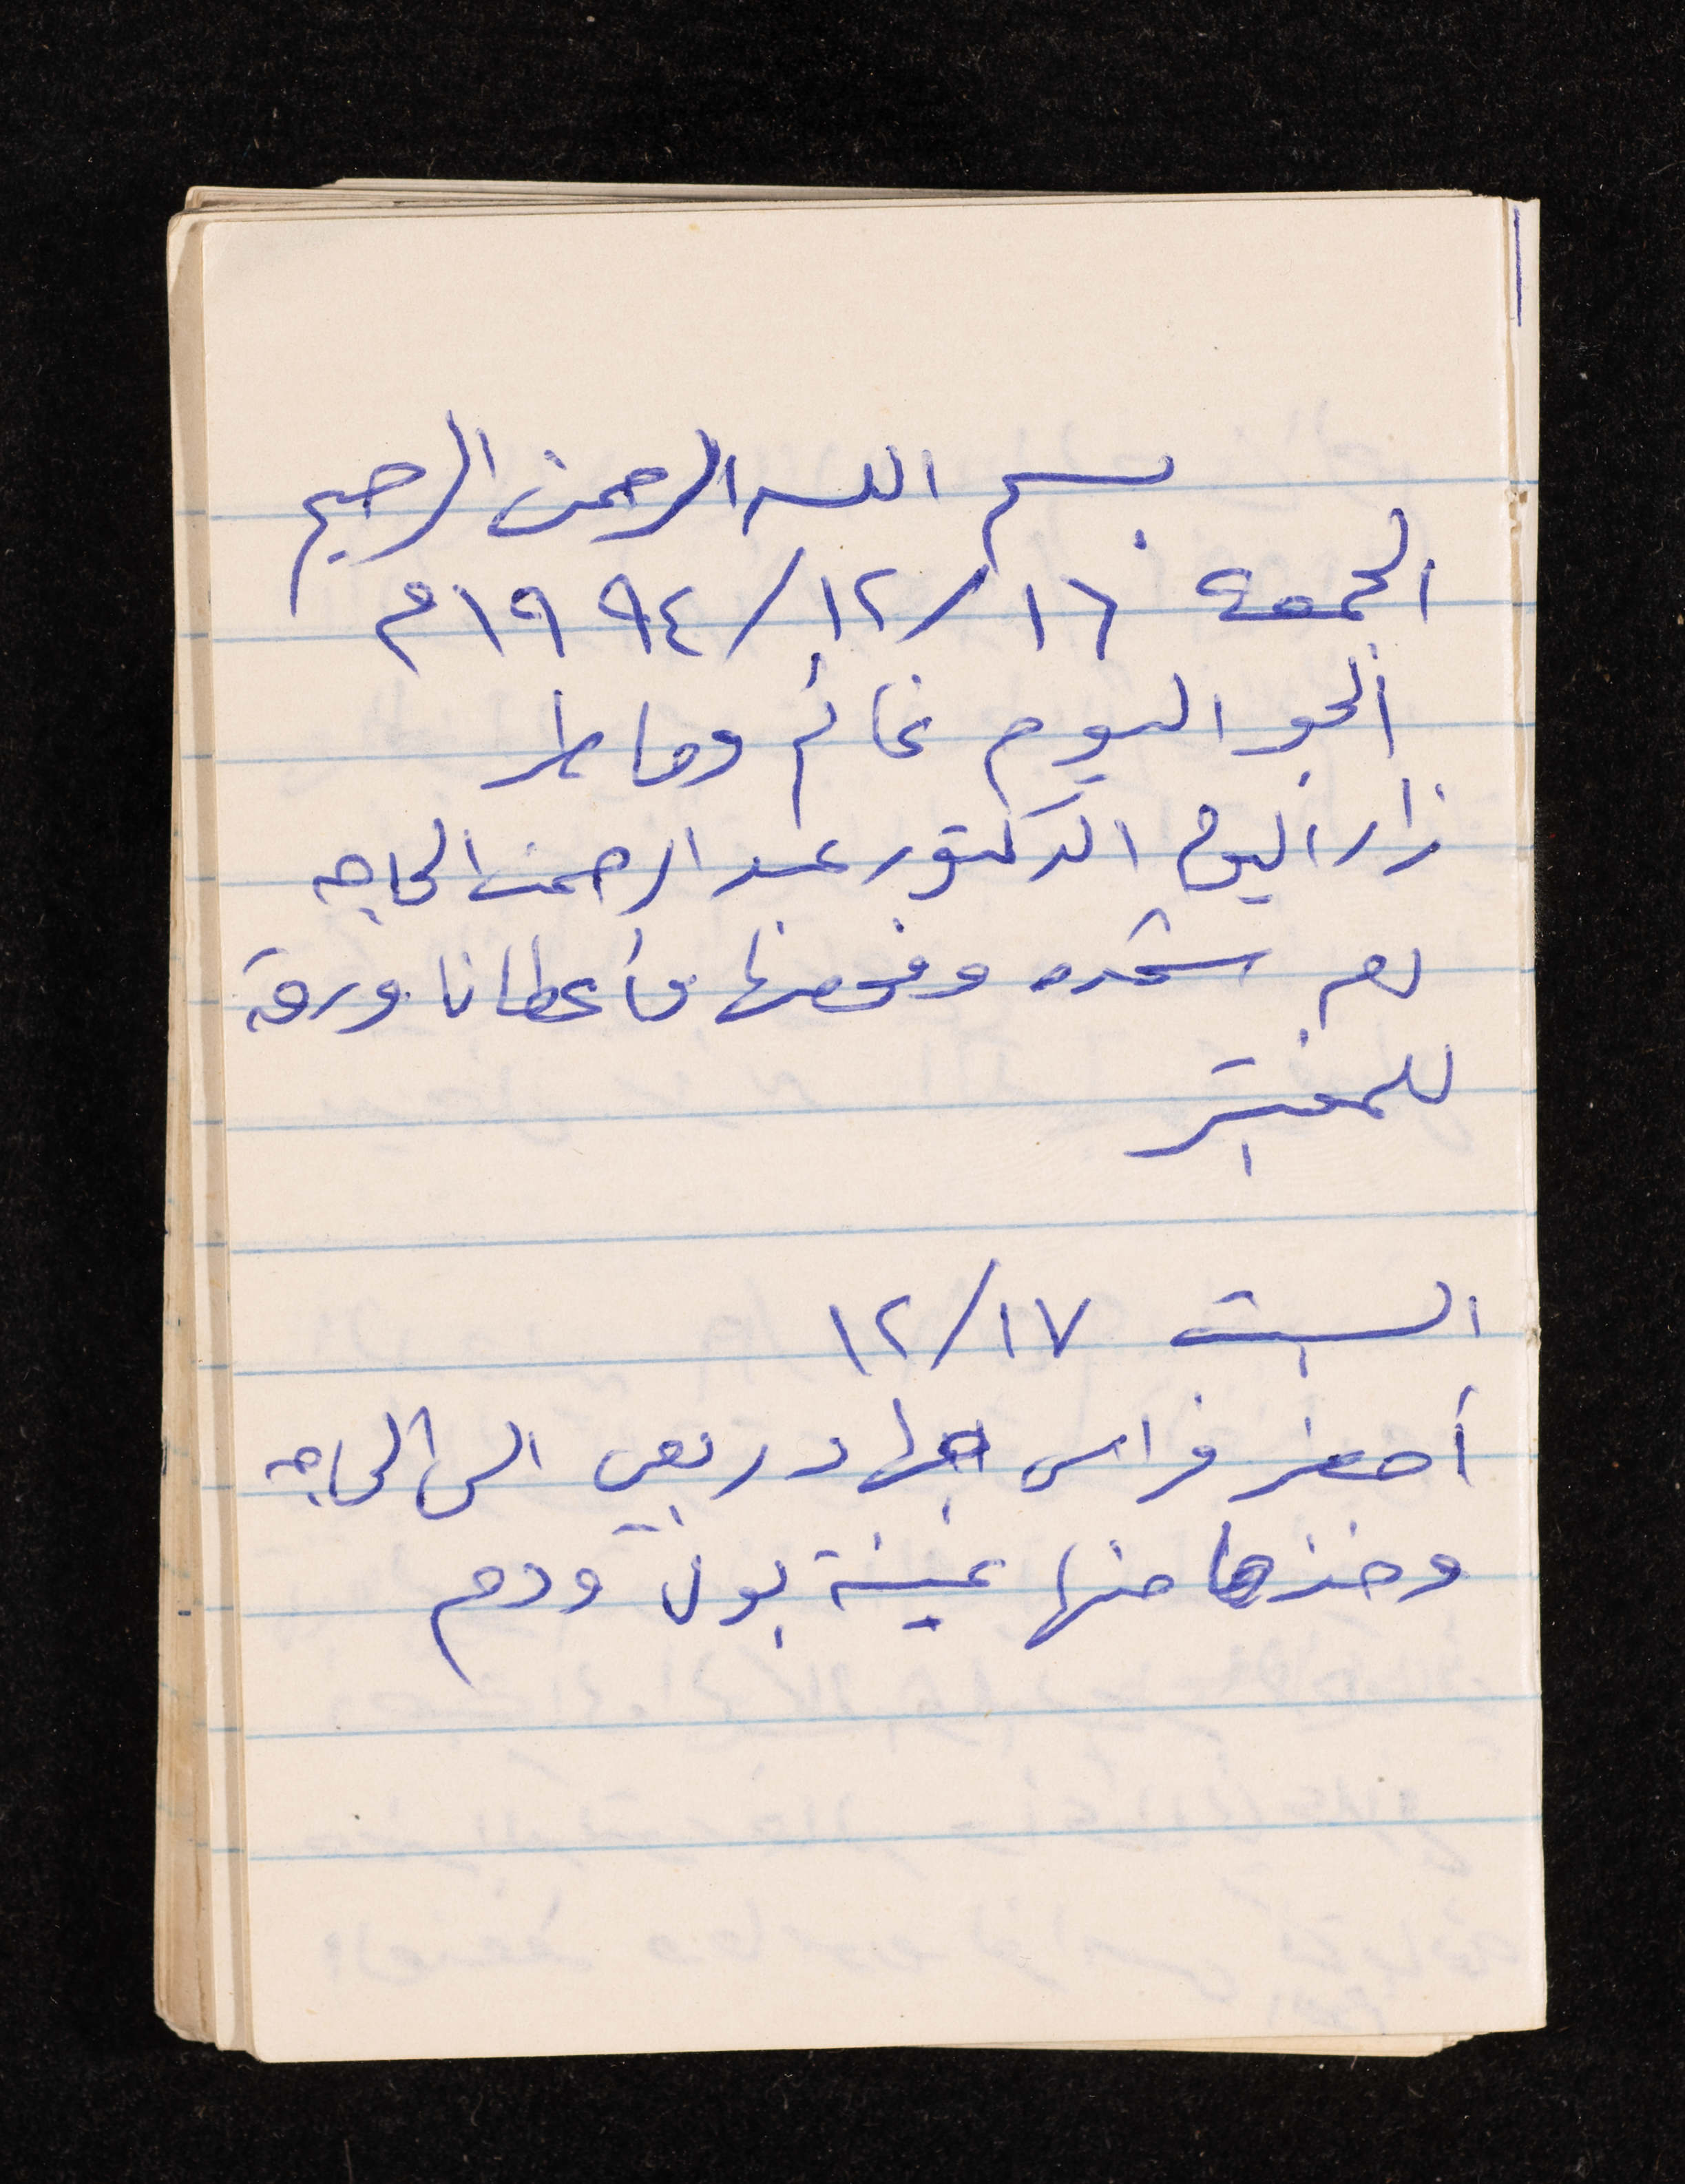 بسم الله الرحمن الرحيم
الجمعة ١٦/١٢/١٩٩٤م
الجو اليوم غائم وماطر
زار اليوم الدكتور عبد الرحمن الحاجه
ام شحده وفحصها فأعطانا ورقة
للمختبر
السبت ١٢/١٧
أحضر فراس جهاد ربعي الى الحاجه
وخذها منها عينة بول ودم